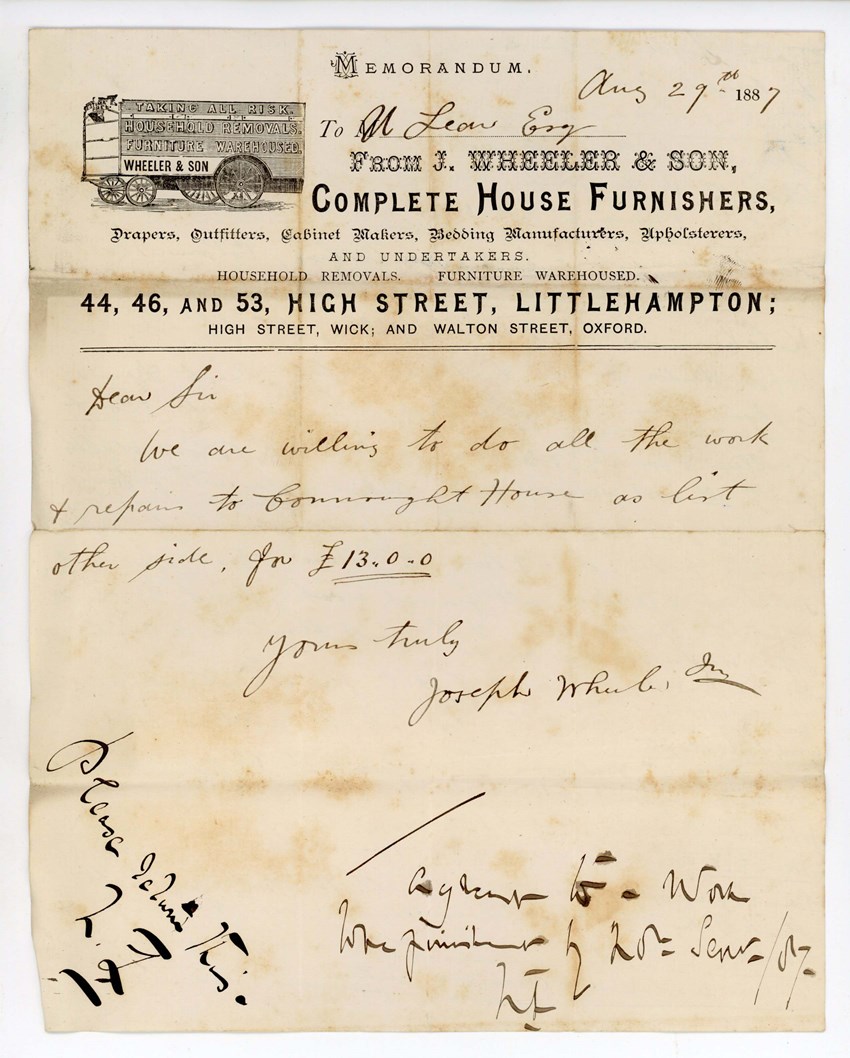 MEMORANDUM.
Aug 29th 1887
TAKING ALL RISK.
HOUSEHOLD REMOVALS.
FURNITURE WAREHOUSED.
WHEELER & SON
To M Lear Esq
FROM J. WHEELER & SON,
COMPLETE HOUSE FURNISHERS,
Drapers, Outfitters, Cabinet Makers, Bedding Manufacturers, Upholsterers,
AND UNDERTAKERS.
HOUSEHOLD REMOVALS. FURNITURE WAREHOUSED.
44, 46, AND 53, HIGH STREET, LITTLEHAMPTON;
HIGH STREET, WICK; AND WALTON STREET, OXFORD.
Dear Sir
We are willing to do all the work
& repairs to Connaught House as list
other side, for £13.0.0
Yours truly
Joseph Wheeler Jnr
Please return this.
Work
by 20th Sepr